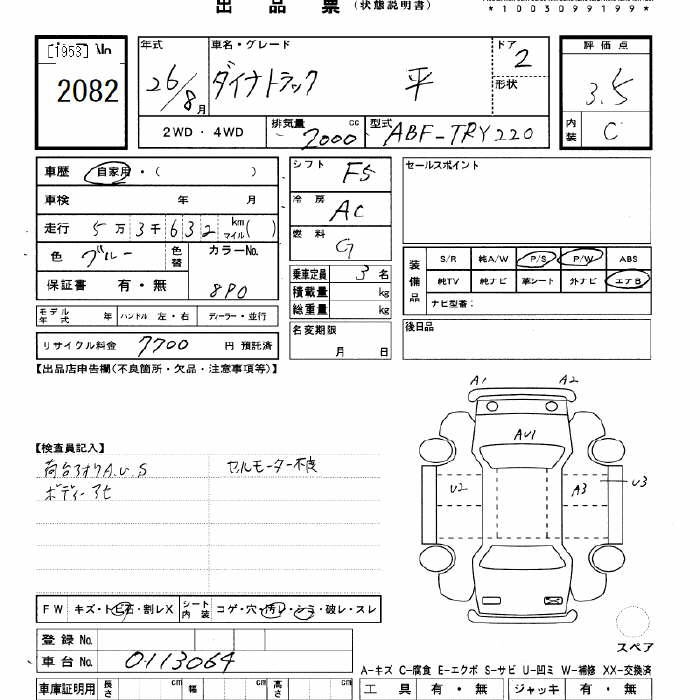 出品票(状態説明書)
*1003099199*
[1953]
2082
年式 車名・グレード ドア 2 評価点
26/8月 ダイナトラック 平 形状 3.5
2WD・4WD 排気量 2000 cc 型式 ABF-TRY220 内装 C
車歴 自家用・( ) シフト F5 セールスポイント
車検 年 月 冷房 AC
走行 5万3千632 km マイル( ) 燃料 G
色 ブルー 色替 カラーNo. 8P0
保証書 有・無
乗車定員 3名
積載量 kg
総重量 kg
装備品 S/R 純A/W P/S P/W ABS
純TV 純ナビ 革シート 外ナビ エアB
ナビ型番:
モデル年式 年 ハンドル 左・右 ディーラー・並行
名変期限 月 日
後日品
リサイクル料金 7700 円 預託済
【出品店申告欄(不良箇所・欠品・注意事項等)】
A1 A2
AU1
【検査員記入】
荷台 A.U.S セルモーター不良
ボディーアセ
U2 A3 U3
FW キズ・トビ石・割レX シート内装 コゲ・穴・汚レ・シミ・破レ・スレ
登録No.
車台No. 0113064
スペア
A-キズ C-腐食 E-エクボ S-サビ U-凹ミ W-補修 XX-交換済
車庫証明用 長さ cm 幅 cm 高さ cm 工具 有・無 ジャッキ 有・無